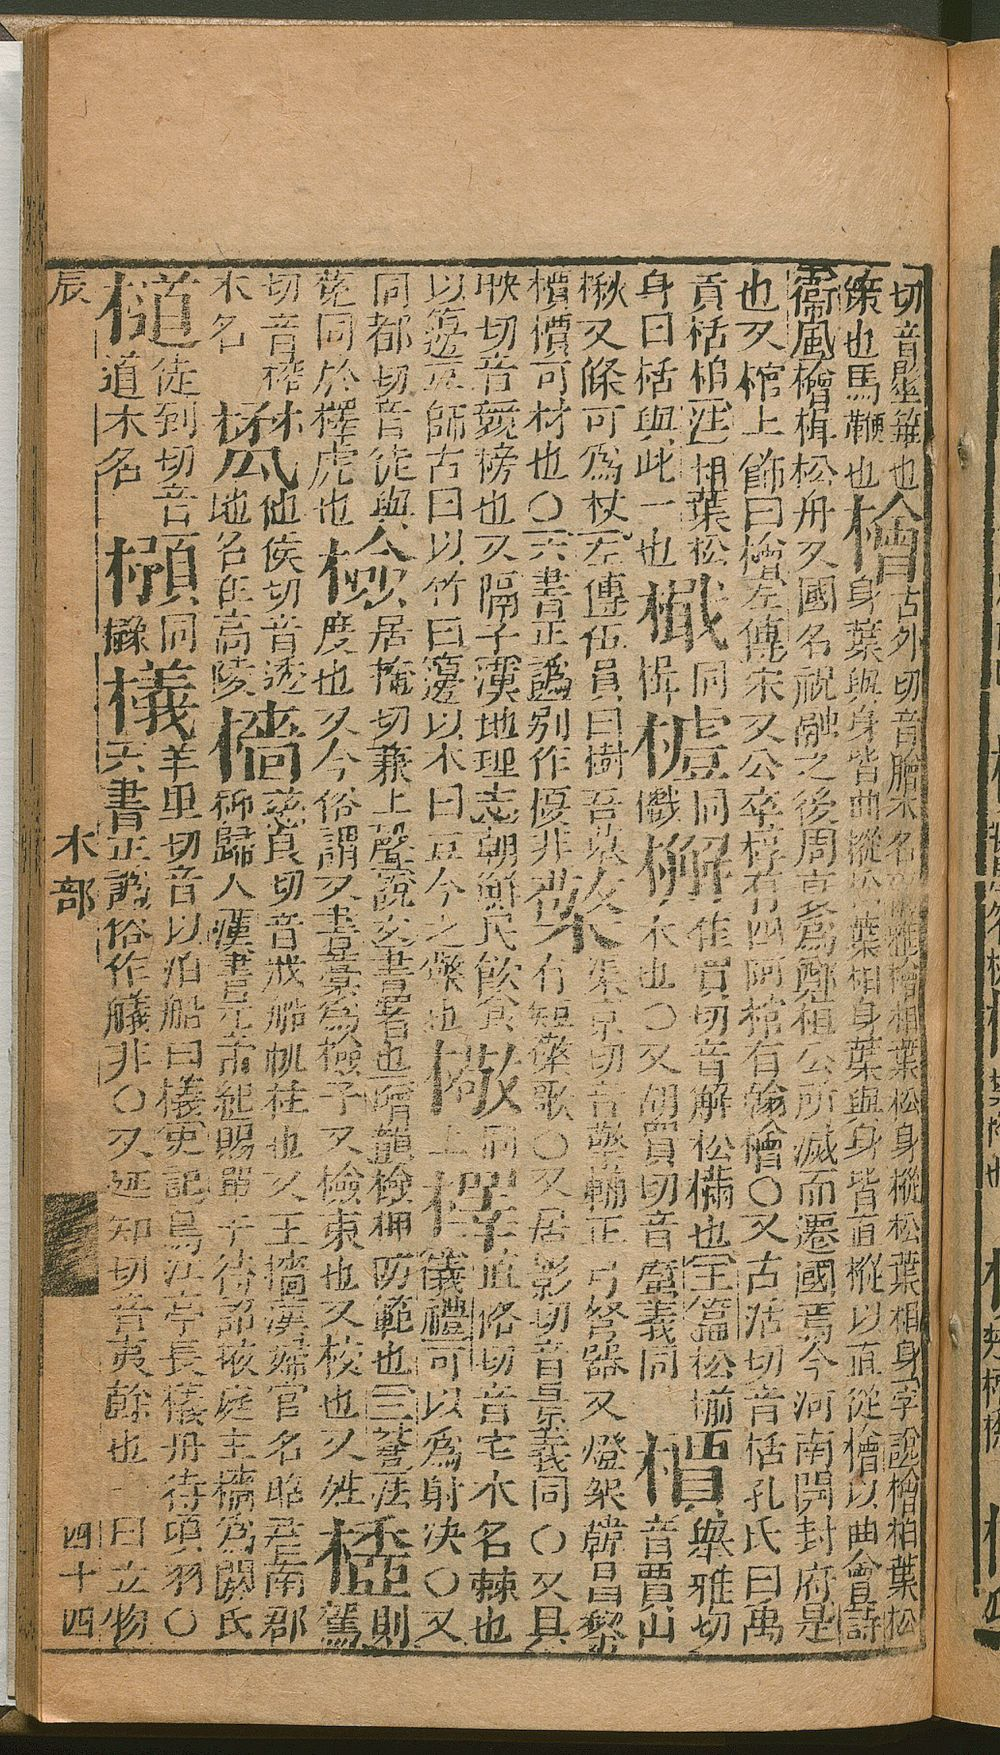 切音壓䉤也檜古外切音膾木名爾雅檜柏葉松身樅松葉柏身字說檜柏葉松
策也馬鞭也身葉與身皆曲樅松葉柏身葉與身皆直樅以直從檜以曲會詩
衞風檜楫松舟又國名祝融之後周衰爲鄭桓公所滅而遷國焉今河南開封府是
也又棺上飾曰檜左傳宋文公卒椁有四阿棺有翰檜〇又古活切音栝孔氏曰禹
貢栝柏注柏葉松樴同櫖同檞佳買切音解松樠也玉篇松樠檟舉雅切
身曰栝與此一也木也〇又胡買切音蟹義同音賈山
楸又條可爲杖左傳伍員曰樹吾墓檠渠京切音擎輔正弓弩器又燈架韓昌黎
檟檟可材也〇六書正譌別作榎非有短檠歌〇又居影切音景義同〇又具
映切音競榜也又隔子漢地理志朝鮮民飮食同檡直格切音宅木名棘也
以籩豆師古曰以竹曰籩以木曰豆今之檠也上儀禮可以爲射決〇又
同都切音徒與檢居掩切兼上聲說文書署也增韻檢柙防範也三蒼法則
菟同於檡虎也度也又今俗謂文書藁爲檢子又檢束也又校也又姓駕
切音榨他侯切音透檣慈良切音戕船帆柱也又王檣漢婦官名昭君南郡
木名地名在高陵秭歸人漢書元帝紀賜單于待詔掖庭王檣爲閼氏
檤徒到切音同檥羊里切音以泊船曰檥史記烏江亭長檥舟待項羽〇
道木名橡六書正譌俗作艤非〇又延知切音夷榦也一曰立物
辰 木部 四十四